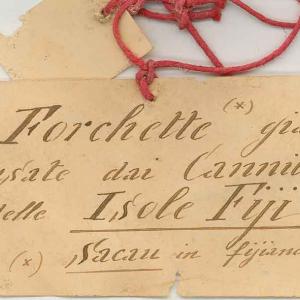 Forchette (x) già
usate dai Canni
delle Isole Fiji
(x) Sacau in fijiano